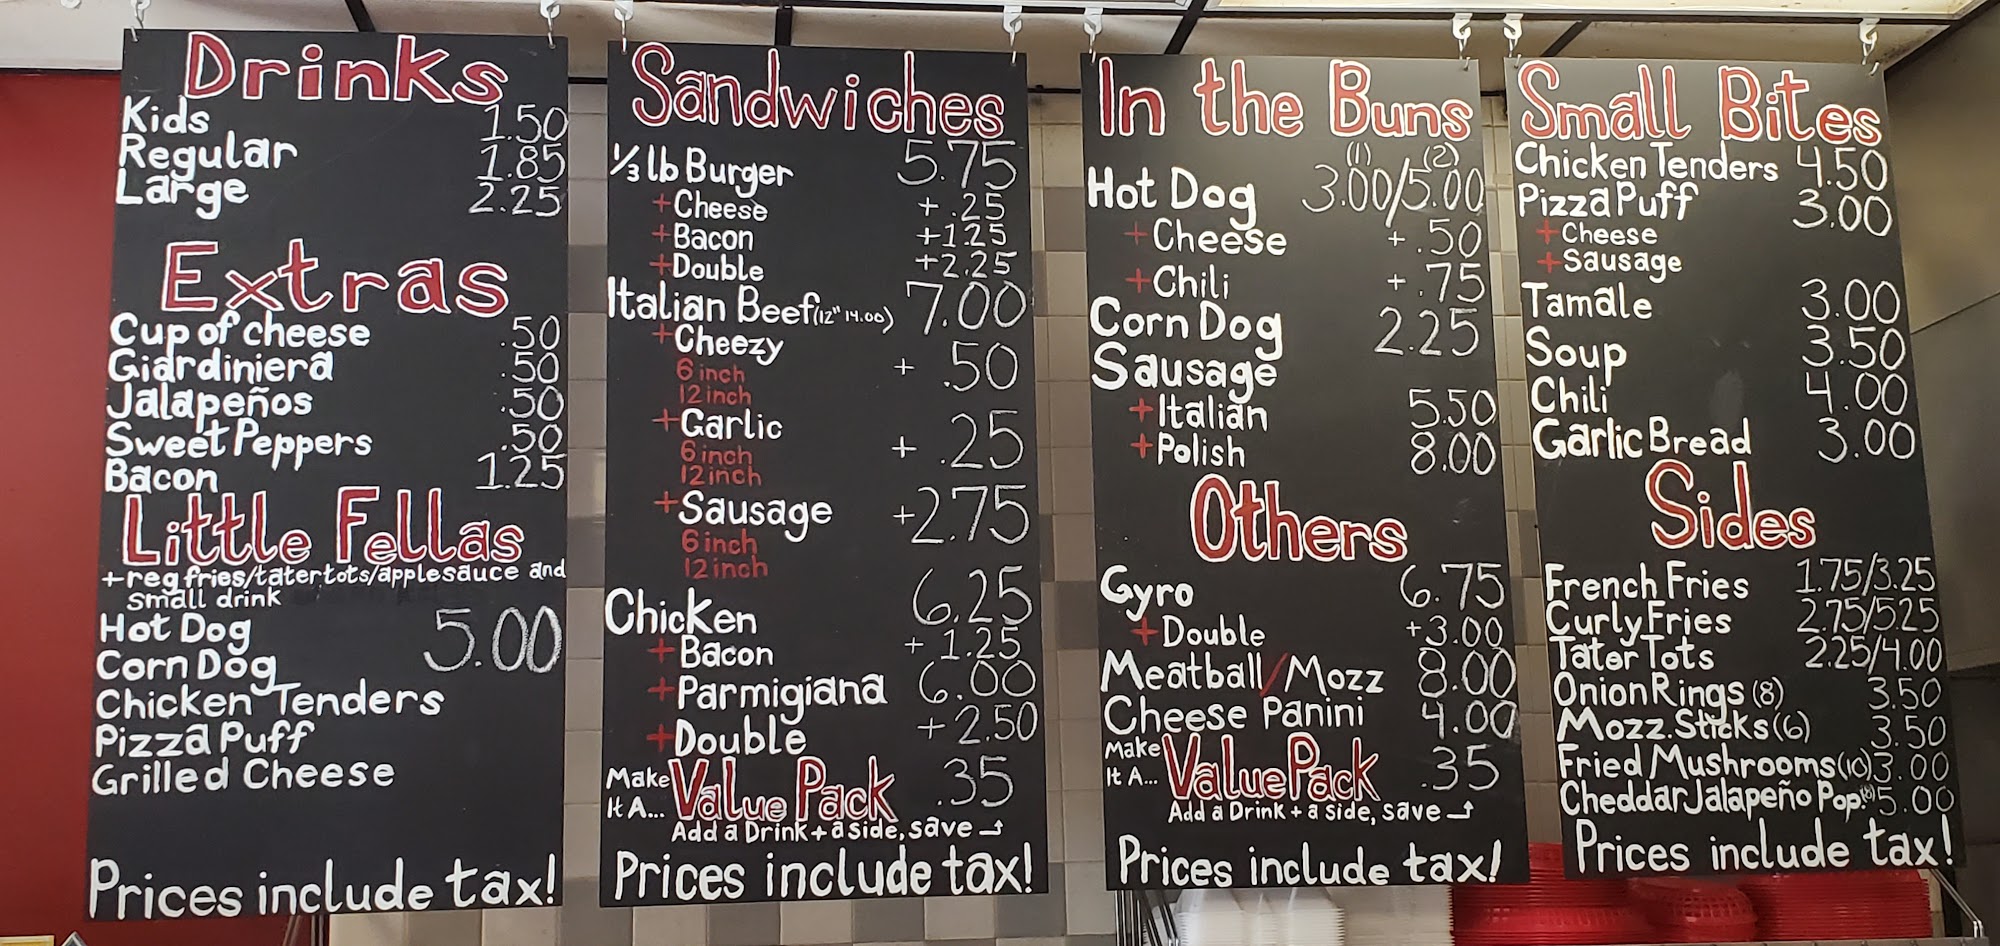 Drinks
Kids 1.50
Regular 1.85
Large 2.25
Extras
Cup of cheese .50
Giardiniera .50
Jalapeños .50
Sweet Peppers .50
Bacon 1.25
Little Fellas
+reg fries/tatertots/applesauce and
small drink
Hot Dog 5.00
Corn Dog
Chicken Tenders
Pizza Puff
Grilled Cheese
Prices include tax!
Sandwiches
1/3 lb Burger 5.75
+Cheese +.25
+Bacon +1.25
+Double +2.25
Italian Beef (12" 14.00) 7.00
+Cheezy + .50
6 inch
12 inch
+Garlic + .25
6 inch
12 inch
+Sausage +2.75
6 inch
12 inch
Chicken 6.25
+Bacon + 1.25
+Parmigiana 6.00
+Double + 2.50
Make It A... Value Pack .35
Add a Drink + a side, save
Prices include tax!
In the Buns
(1) (2)
Hot Dog 3.00/5.00
+Cheese +.50
+Chili +.75
Corn Dog 2.25
Sausage
+Italian 5.50
+Polish 8.00
Others
Gyro 6.75
+Double +3.00
Meatball/Mozz 8.00
Cheese Panini 4.00
Make It A... Value Pack .35
Add a Drink + a side, save
Prices include tax!
Small Bites
Chicken Tenders 4.50
Pizza Puff 3.00
+Cheese
+Sausage
Tamale 3.00
Soup 3.50
Chili 4.00
Garlic Bread 3.00
Sides
French Fries 1.75/3.25
Curly Fries 2.75/5.25
Tater Tots 2.25/4.00
Onion Rings (8) 3.50
Mozz. Sticks (6) 3.50
Fried Mushrooms (10) 3.00
Cheddar Jalapeño Pop. (8) 5.00
Prices include tax!